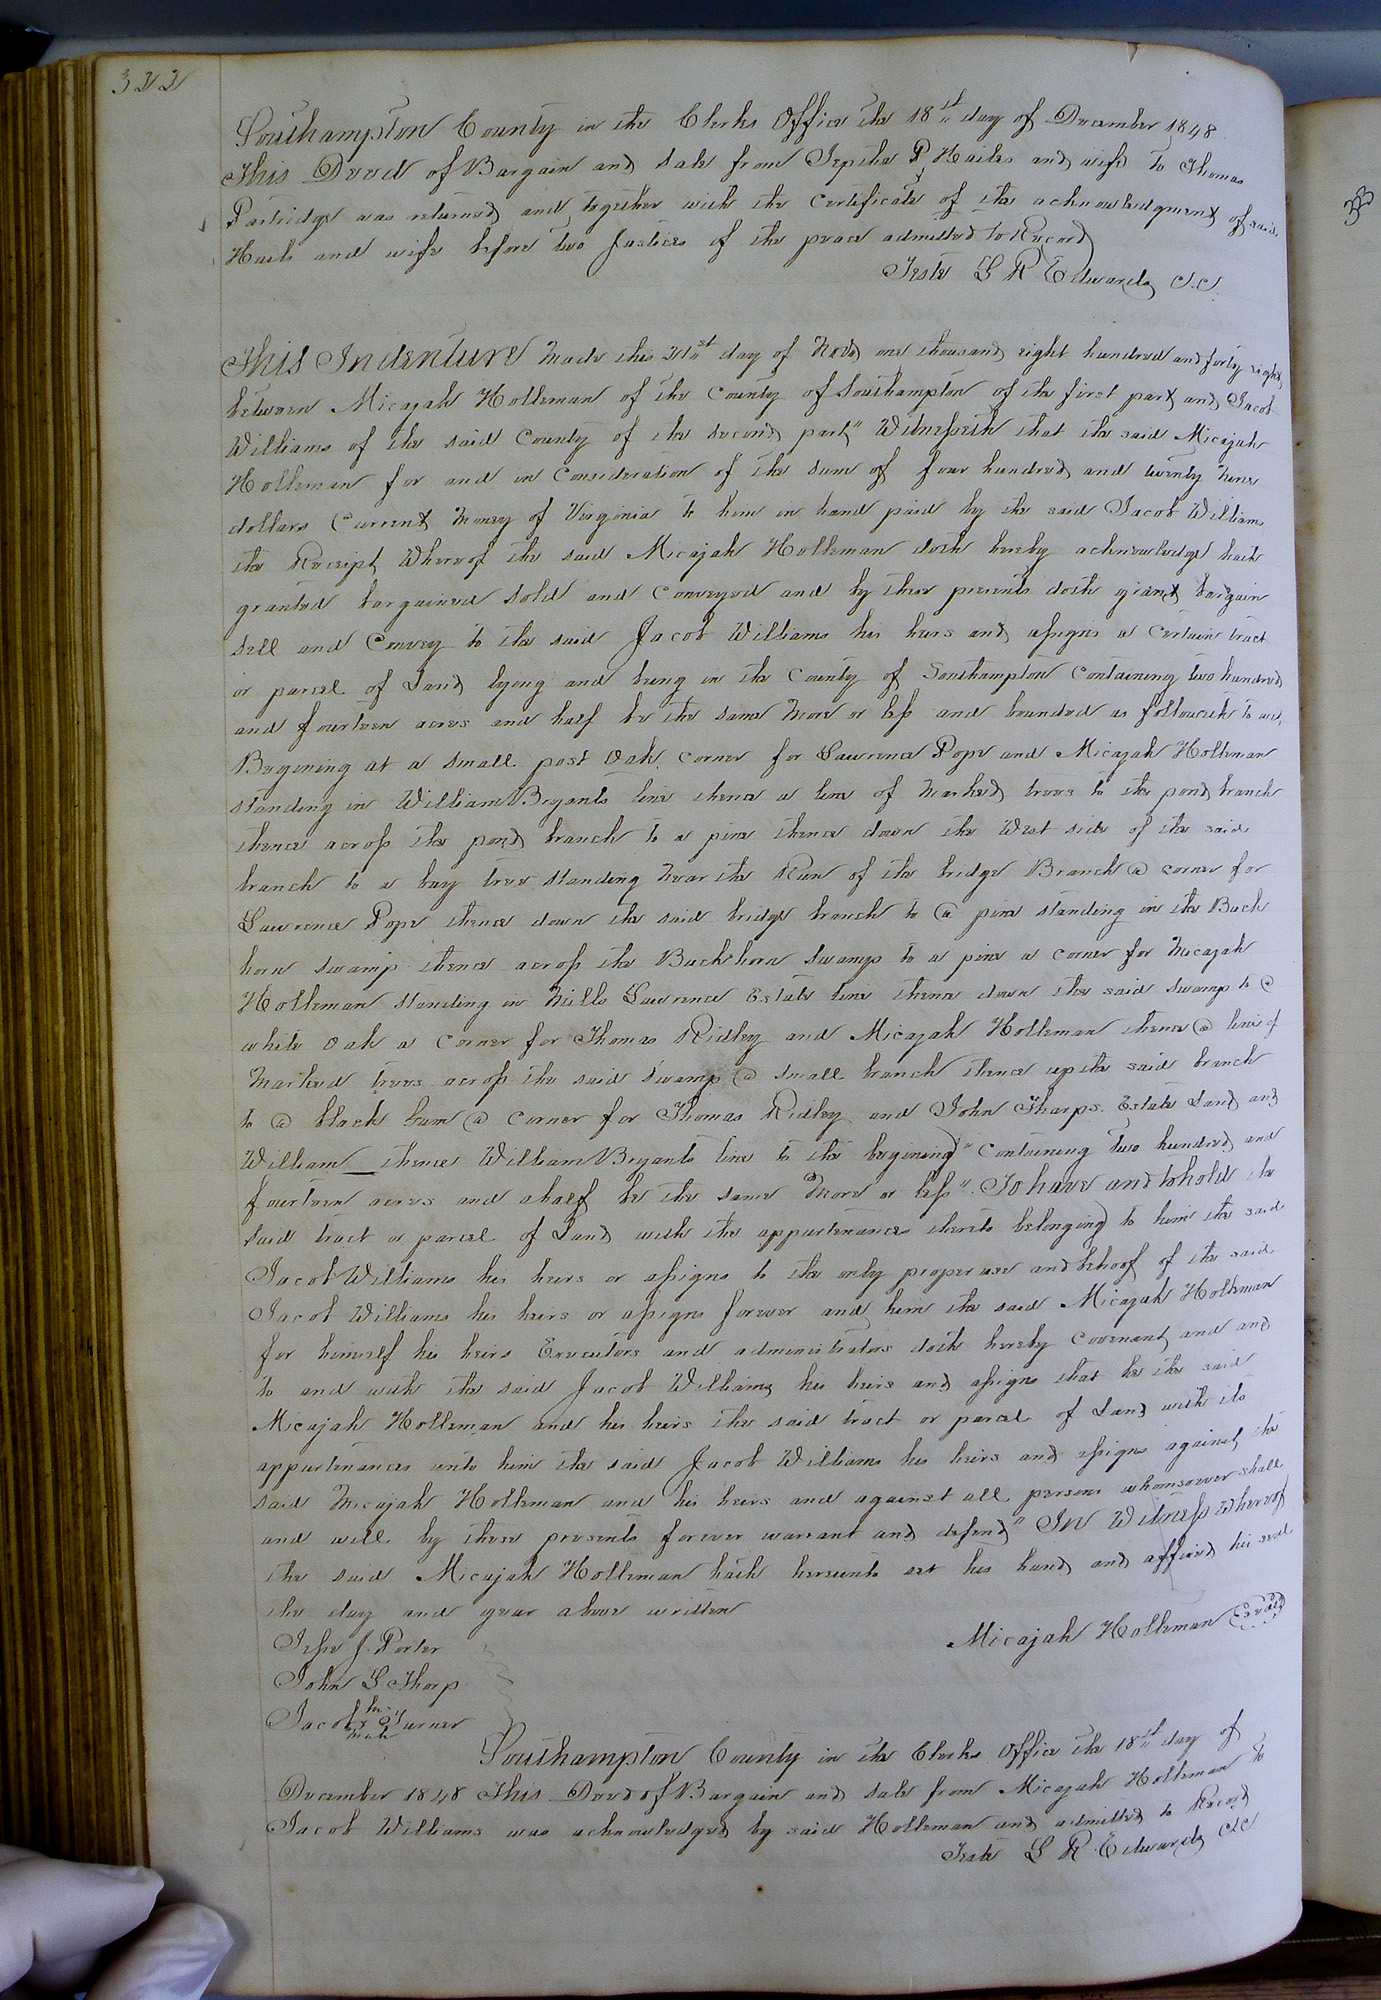 322
Southampton County in the Clerks Office the 18th day of December 1848
This Deed of Bargain and sale from Jeptha P Hailes and wife to Thomas
Partridge was returned and together with the Certificate of the acknowledgment of said
Hails and wife before two Justices of the peace admitted to Record
Teste L R Edwards C.C.
This Indenture Made this 21st day of Nov one thousand eight hundred and forty eight
between Micajah Holleman of the County of Southampton of the first part and Jacob
Williams of the said County of the second part" Witnesseth that the said Micajah
Holleman for and in Consideration of the sum of four hundred and twenty Nine
dollars Current Money of Virginia to him in hand paid by the said Jacob Williams
the Receipt Whereof the said Micajah Holleman doth hereby acknowledge hath
granted bargained sold and Conveyed and by these presents doth grant bargain
sell and Convey to the said Jacob Williams his heirs and assigns a Certain tract
or parcel of Land lying and being in the County of Southampton Containing two hundred
and fourteen acres and half be the same More or less and bounded as followeth to wit,
Begining at a small post Oak corner for Lawrence Pope and Micajah Holleman
standing in William Bryants line thence a line of Marked trees to the pond branch
thence across the pond branch to a pine thence down the West side of the said
branch to a bay tree standing Near the Run of the bridge Branch @ corner for
Lawrence Pope thence down the said bridge branch to @ pine standing in the Buck
horn swamp thence across the Buckhorn Swamp to a pine a corner for Micajah
Holleman standing in Mills Lawrence Estate line thence down the said swamp to @
white oak a Corner for Thomas Ridley and Micajah Holleman thence @ line of
Marked trees across the said swamp @ small branch thence up the said branch
to @ black Gum @ corner for Thomas Ridley and John Tharps Estate Land and
William thence William Bryants line to the begining" Containing two hundred and
fourteen acres and a half be the same More or less". To have and to hold the
said tract or parcel of Land with the appurtenances thereto belonging to him the said
Jacob Williams his heirs or assigns to the only proper use and behoof of the said
Jacob Williams his heirs or assigns forever and him the said Micajah Holleman
for himself his heirs Executors and administrators doth hereby Covenant and and
to and with the said Jacob Williams his heirs and assigns that he the said
Micajah Holleman and his heirs the said tract or parcel of Land with its
appurtenances unto him the said Jacob Williams his heirs and assigns against the
said Micajah Holleman and his heirs and against all persons whomsoever shall
and will by these presents forever warrant and defend" In Witness Whereof
the said Micajah Holleman hath hereunto set his hand and affixed his seal
the day and year above written
Micajah Holleman Seal
Jesse J. Porter
John L Tharp
Jacob his x mark Turner
Southampton County in the Clerks Office the 18th day of
December 1848 This Deed of Bargain and sale from Micajah Holleman to
Jacob Williams was acknowledged by said Holleman and admitted to Record
Teste L R Edwards C.C